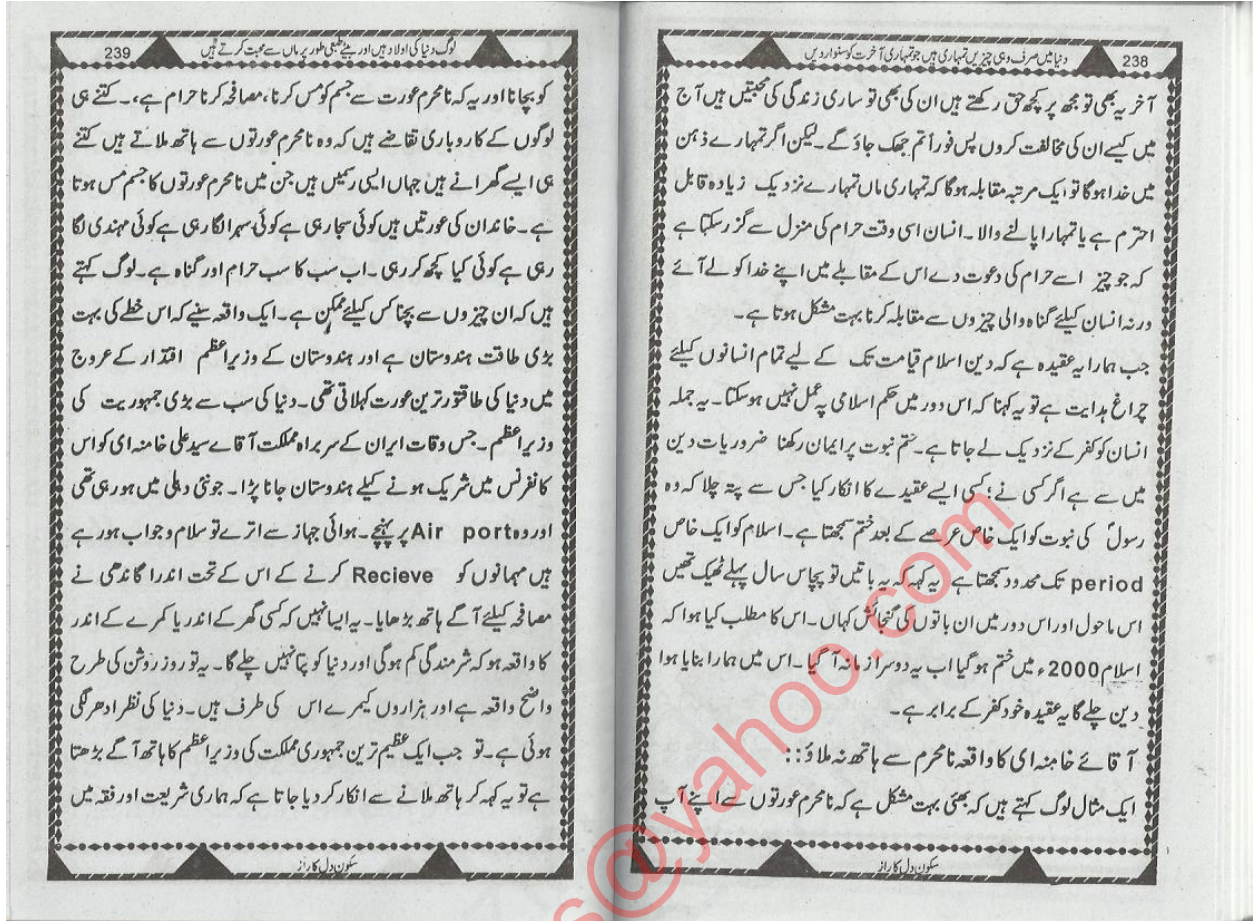 238
دنیا میں صرف وہی چیزیں تمہاری ہیں جو تمہاری آخرت کو سنوار دیں
آخر یہ بھی تو مجھ پر کچھ حق رکھتے ہیں ان کی بھی تو ساری زندگی کی محبتیں ہیں آج
میں کیسے ان کی مخالفت کروں پس فوراً تم جھک جاؤ گے۔ لیکن اگر تمہارے ذہن
میں خدا ہوگا تو ایک مرتبہ مقابلہ ہوگا کہ تمہاری ماں تمہارے نزدیک زیادہ قابل
احترم ہے یا تمہارا پالنے والا۔ انسان اسی وقت حرام کی منزل سے گزر سکتا ہے
کہ جو چیز اسے حرام کی دعوت دے اس کے مقابلے میں اپنے خدا کو لے آئے
ورنہ انسان کیلئے گناہ والی چیزوں سے مقابلہ کرنا بہت مشکل ہوتا ہے۔
جب ہمارا یہ عقیدہ ہے کہ دین اسلام قیامت تک کے لیے تمام انسانوں کیلئے
چراغ ہدایت ہے تو یہ کہنا کہ اس دور میں حکم اسلامی پہ عمل نہیں ہوسکتا۔ یہ جملہ
انسان کو کفر کے نزدیک لے جاتا ہے۔ ختم نبوت پر ایمان رکھنا ضروریات دین
میں سے ہے اگر کسی نے؛ کسی ایسے عقیدے کا انکار کیا جس سے پتہ چلا کہ وہ
رسولؐ کی نبوت کو ایک خاص عرصے کے بعد ختم سمجھتا ہے۔ اسلام کو ایک خاص
period تک محدود سمجھتا ہے یہ کہہ کہ یہ باتیں تو پچاس سال پہلے ٹھیک تھیں
اس ماحول اور اس دور میں ان باتوں کی گنجائش کہاں۔ اس کا مطلب کیا ہوا کہ
اسلام 2000ء میں ختم ہوگیا اب یہ دوسرا زمانہ آگیا۔ اس میں ہمارا بنایا ہوا
دین چلے گا یہ عقیدہ خود کفر کے برابر ہے۔
آقائے خامنہ ای کا واقعہ نامحرم سے ہاتھ نہ ملاؤ::
ایک مثال لوگ کہتے ہیں کہ بھئی بہت مشکل ہے کہ نامحرم عورتوں سے اپنے آپ
سکون دل کا راز
239
لوگ دنیا کی اولاد ہیں اور بیٹے طبعی طور پر ماں سے محبت کرتے ہیں
کو بچانا اور یہ کہ نامحرم عورت سے جسم کو مس کرنا، مصافحہ کرنا حرام ہے،۔ کتنے ہی
لوگوں کے کاروباری تقاضے ہیں کہ وہ نامحرم عورتوں سے ہاتھ ملاتے ہیں کتنے
ہی ایسے گھرانے ہیں جہاں ایسی رسمیں ہیں جن میں نامحرم عورتوں کا جسم مس ہوتا
ہے۔ خاندان کی عورتیں ہیں کوئی سجا رہی ہے کوئی سہرا لگا رہی ہے کوئی مہندی لگا
رہی ہے کوئی کیا کچھ کر رہی۔ اب سب کا سب حرام اور گناہ ہے۔ لوگ کہتے
ہیں کہ ان چیزوں سے بچنا کس کیلئے ممکن ہے۔ ایک واقعہ سنیے کہ اس خطے کی بہت
بڑی طاقت ہندوستان ہے اور ہندوستان کے وزیراعظم اقتدار کے عروج
میں دنیا کی طاقتور ترین عورت کہلاتی تھی۔ دنیا کی سب سے بڑی جمہوریت کی
وزیراعظم۔ جس وقات ایران کے سربراہ مملکت آقاے سید علی خامنہ ای کو اس
کانفرنس میں شریک ہونے کیلے ہندوستان جانا پڑا۔ جو نئی دہلی میں ہو رہی تھی
اور وہ Air port پر پہنچے۔ ہوائی جہاز سے اترے تو سلام وجواب ہورہے
ہیں مہمانوں کو Recieve کرنے کے اس کے تحت اندرا گاندھی نے
مصافحہ کیلئے آگے ہاتھ بڑھایا۔ یہ ایسا نہیں کہ کسی گھر کے اندر یا کمرے کے اندر
کا واقعہ ہو کہ شرمندگی کم ہوگی اور دنیا کو پتا نہیں چلے گا۔ یہ تو روز روشن کی طرح
واضح واقعہ ہے اور ہزاروں کیمرے اس کی طرف ہیں۔ دنیا کی نظر ادھر لگی
ہوئی ہے۔ تو جب ایک عظیم ترین جمہوری مملکت کی وزیراعظم کا ہاتھ آگے بڑھتا
ہے تو یہ کہہ کر ہاتھ ملانے سے انکار کردیا جاتا ہے کہ ہماری شریعت اور فقہ میں
سکون دل کا راز
s@yahoo.com